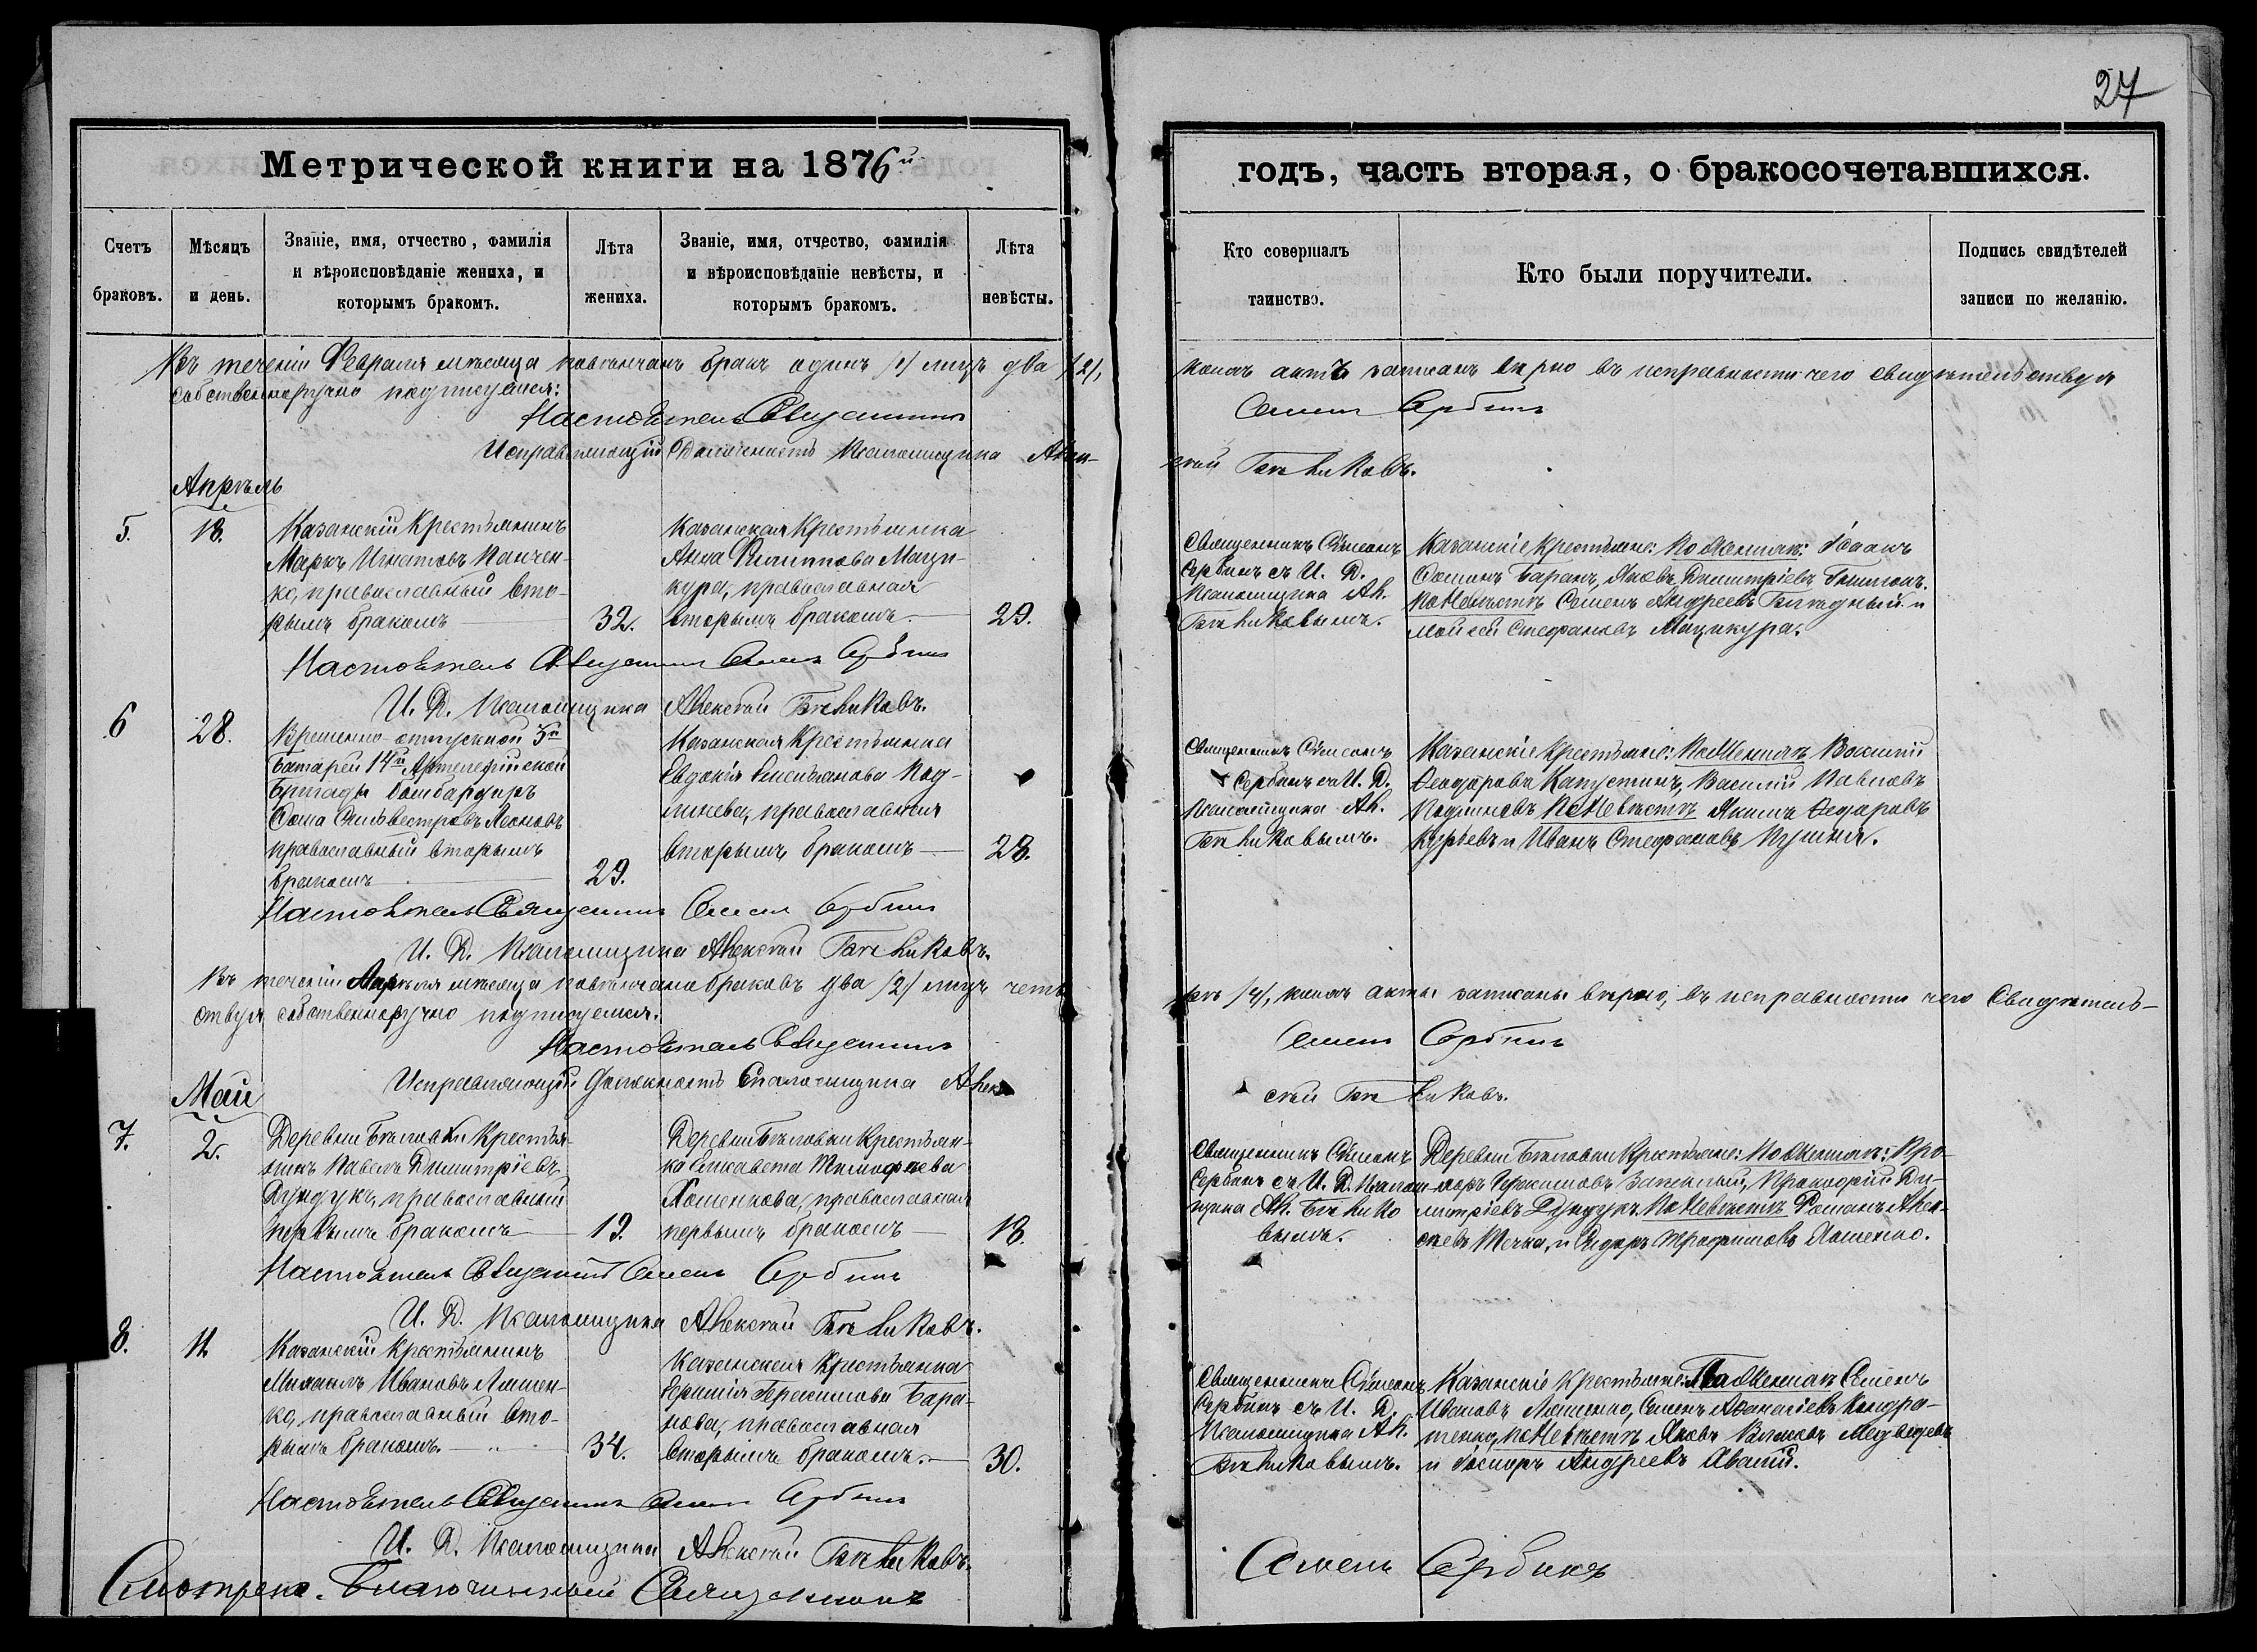 27
Метрической книги на 1876й
годъ, часть вторая, о бракосочетавшихся.
Счетъ браковъ.
Мѣсяцъ и день.
Званіе, имя, отчество, фамилія и вѣроисповѣданіе жениха, и которымъ бракомъ.
Лѣта жениха.
Званіе, имя, отчество, фамилія и вѣроисповѣданіе невѣсты, и которымъ бракомъ.
Лѣта невѣсты.
Кто совершалъ таинство.
Кто были поручители.
Подпись свидѣтелей записи по желанію.
Въ теченіи Февраля мѣсяца повѣнчанъ бракъ одинъ /1/ лицъ два /2/,
коихъ актъ записанъ вѣрно въ исправности чего свидѣтельствуя
собственноручно подписуемся:
Настоятель Священникъ
Семенъ Сербинъ
Исправляющій Должность Псаломщика Алек-
сѣй Бѣликовъ.
Апрѣль
5.
18.
Казанскій Крестьянинъ
Маркъ Игнатовъ Панчен-
ко, православный вто-
рымъ бракомъ
32.
Казанская Крестьянка
Анна Филиппова Маци-
кура, православная
вторымъ бракомъ.
29.
Священникъ Симеонъ
Сербинъ съ И. Д.
Псаломщика Ал.
Бѣликовымъ.
Казанскіе Крестьяне: По Женихѣ: Исаакъ
Баранъ, Яковъ Димитріевъ
По Невѣстѣ Семенъ Андреевъ и
Моисей Стефановъ Мацикура.
Настоятель Священникъ Семенъ Сербинъ
И. Д. Псаломщика Алексѣй Бѣликовъ.
6
28.
Временно-отпускной 5й
Батареи 14й Артилерійской
Бригады бомбардиръ
Фома Сильвестровъ Леоновъ
православный вторымъ
бракомъ
29.
Казанская Крестьянка
Евдокія Емельянова Под-
линева, православная
вторымъ бракомъ
28.
Священникъ Симеонъ
Сербинъ съ И. Д.
Псаломщика Ал.
Бѣликовымъ.
Казанскіе Крестьяне: По Женихѣ Василій
Феодоровъ Капустинъ, Василій Павловъ
По Невѣстѣ Якимъ Федоровъ
и Иванъ Стефановъ
Настоятель Священникъ Семенъ Сербинъ
И. Д. Псаломщика Алексѣй Бѣликовъ.
Въ теченіи Апрѣля мѣсяца повѣнчано браковъ два /2/ лицъ четы
ре /4/, коихъ акты записаны вѣрно, въ исправности чего Свидѣтель-
ствуя собственноручно подписуемся.
Настоятель Священникъ
Семенъ Сербинъ
Исправляющій Должность Псаломщика Алек
сѣй Бѣликовъ.
Май
7.
2.
Деревни Бѣловки Крестья-
нинъ Павелъ Димитріевъ
Дундукъ, православный
первымъ бракомъ
19.
Деревни Бѣловки Крестьян-
ка Елисавета Тимофѣева
Ляшенкова, православная
первымъ бракомъ
18.
Священникъ Симеонъ
Сербинъ съ И. Д. Псалом-
щика Ал. Бѣлико
вымъ.
Деревни Бѣловки Крестьяне: По Женихѣ:
Прокофій Ди-
митріевъ Дундукъ. По Невѣстѣ Романъ Алек-
и Федоръ Трофимовъ Ляшенко.
Настоятель Священникъ Семенъ Сербинъ
И. Д. Псаломщика Алексѣй Бѣликовъ.
8.
11.
Казанскій Крестьянинъ
Михаилъ Ивановъ Ляшен-
ко, православный вто-
рымъ бракомъ.
34.
Казанская Крестьянка
Герасимова Бара-
нова, православная
вторымъ бракомъ.
30.
Священникъ Симеонъ
Сербинъ съ И. Д.
Псаломщика Ал.
Бѣликовымъ.
Казанскіе Крестьяне: По Женихѣ Семенъ
Ивановъ Ляшенко, Семенъ Афанасіевъ Кондра-
тенко, по Невѣстѣ Яковъ Медведевъ
и Андреевъ
Настоятель Священникъ Семенъ Сербинъ
И. Д. Псаломщика Алексѣй Бѣликовъ.
Смотрено. Благочинный Священникъ
Семенъ Сербинъ